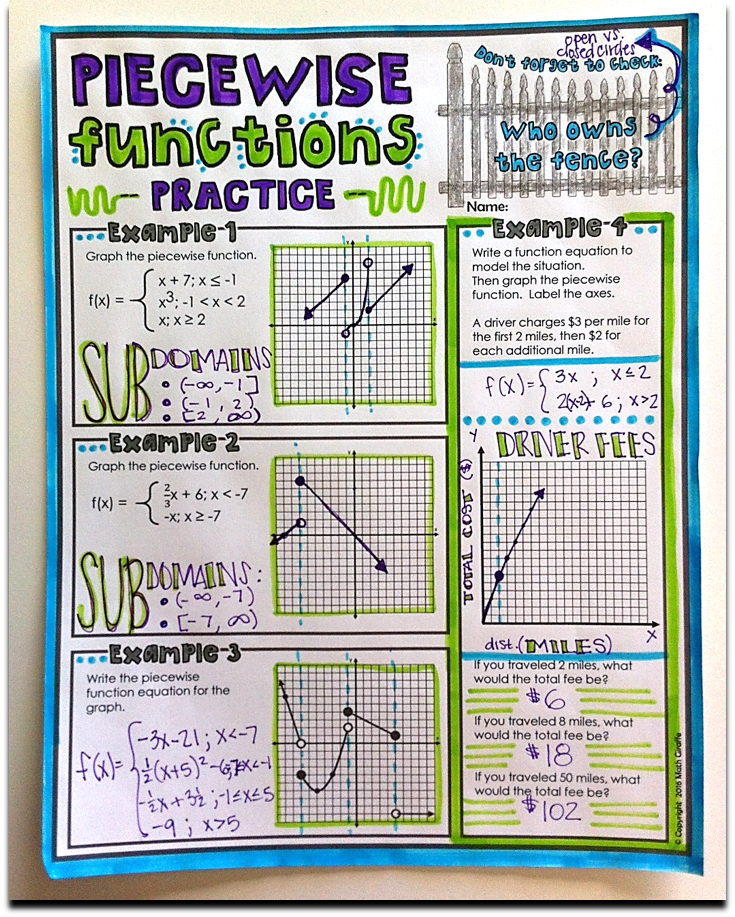 PIECEWISE
functions
PRACTICE
open vs.
closed circles
Don't forget to check:
Who owns
the fence?
Name:
Example-1
Graph the piecewise function.
f(x) =
x + 7; x ≤ -1
x³; -1 < x < 2
x; x ≥ 2
SUB DOMAINS
• (-∞, -1]
• (-1, 2)
• [2, ∞)
Example-2
Graph the piecewise function.
f(x) =
2/3 x + 6; x < -7
-x; x ≥ -7
SUB DOMAINS:
• (-∞, -7)
• [-7, ∞)
Example-3
Write the piecewise
function equation for the
graph.
f(x) =
-3x-21; x<-7
-½x+3½; -1≤x≤5
-9; x>5
Example-4
Write a function equation to
model the situation.
Then graph the piecewise
function. Label the axes.
A driver charges $3 per mile for
the first 2 miles, then $2 for
each additional mile.
f(x) =
3x ; x≤2
2(x-2)+6; x>2
Y
DRIVER FEES
TOTAL COST ($)
X
dist. (MILES)
If you traveled 2 miles, what
would the total fee be?
$6
If you traveled 8 miles, what
would the total fee be?
$18
If you traveled 50 miles, what
would the total fee be?
$102
© Copyright 2016 Math Giraffe